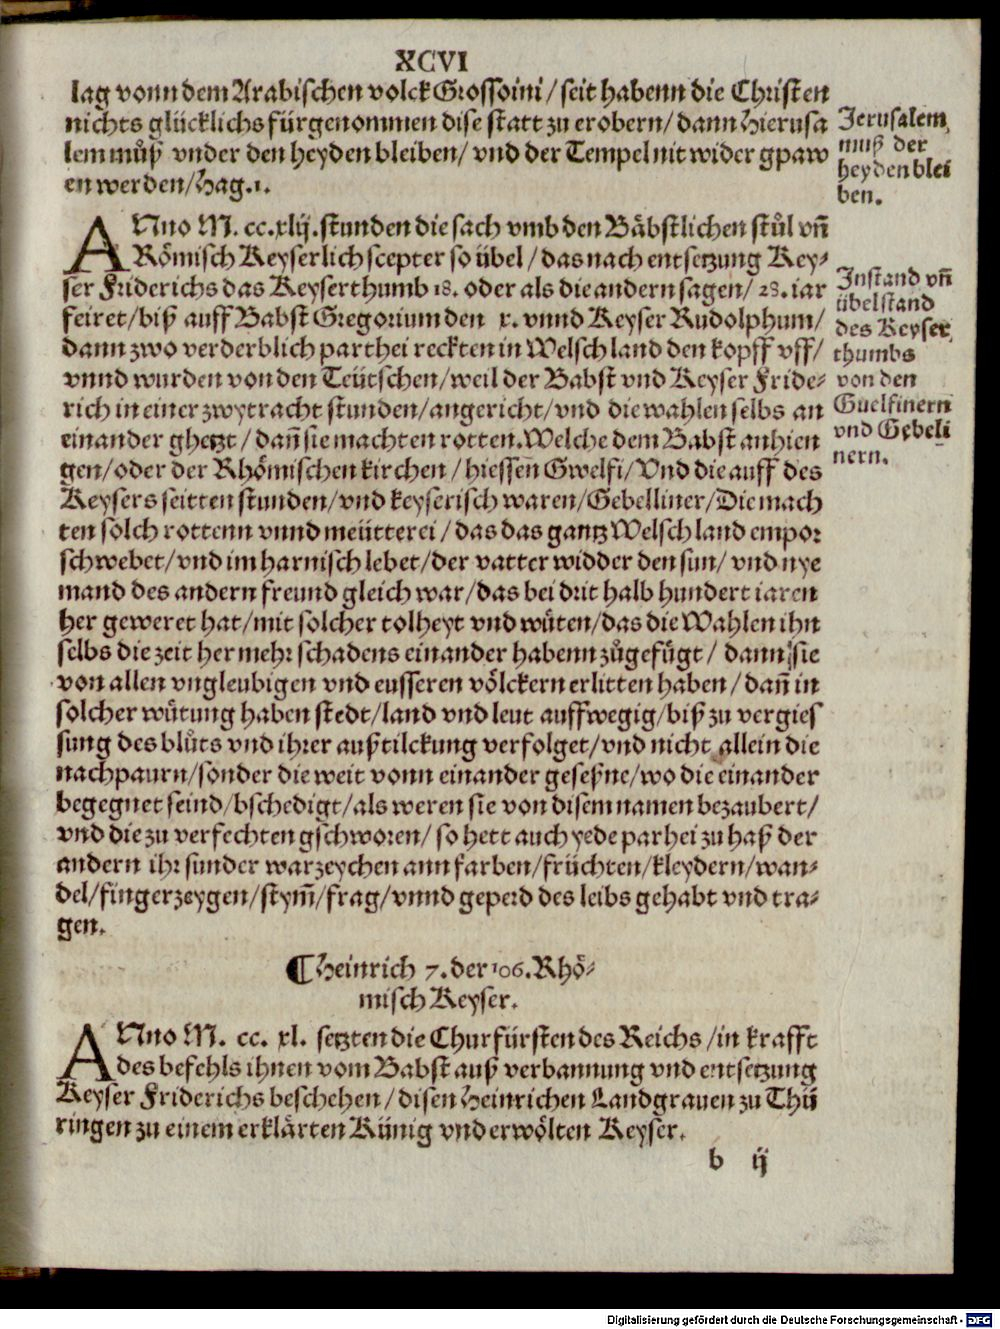 XCVI
lag vonn dem Arabischen volck Grossoini / seit habenn die Christen
nichts glücklichs fürgenommen dise statt zu erobern / dann Hierusa
lem můß vnder den heyden bleiben / vnd der Tempel nit wider gpaw
en werden / Hag. 1.
Jerusalem
muß der
heyden blei
ben.
ANno M. cc. xlij. stunden die sach vmb den Bäbstlichen stůl vñ
Römisch Keyserlich scepter so übel / das nach entsetzung Key⸗
ser Friderichs das Keyserthumb 18. oder als die andern sagen / 28. iar
feiret / biß auff Babst Gregorium den x. vnnd Keyser Rudolphum /
dann zwo verderblich parthei reckten in Welschland den kopff vff /
vnnd wurden von den Teütschen / weil der Babst vnd Keyser Fride⸗
rich in einer zwytracht stunden / angericht / vnd die wahlen selbs an
einander ghetzt / dañ sie machten rotten. Welche dem Babst anhien
gen / oder der Rhömischen kirchen / hiessen Gwelfi / Vnd die auff des
Keysers seitten stunden / vnd keyserisch waren / Gebelliner / Die mach
ten solch rottenn vnnd meütterei / das das gantz Welschland empor
schwebet / vnd im harnisch lebet / der vatter widder den sun / vnd nye
mand des andern freund gleich war / das bei drit halb hundert iaren
her geweret hat / mit solcher tolheyt vnd wüten / das die Wahlen ihn
selbs die zeit her mehr schadens einander habenn zůgefügt / dann sie
von allen vngleubigen vnd eusseren völckern erlitten haben / dañ in
solcher wütung haben stedt / land vnd leut auffwegig / biß zu vergies
sung des blůts vnd ihrer außtilckung verfolget / vnd nicht allein die
nachpaurn / sonder die weit vonn einander geseßne / wo die einander
begegnet seind / bschedigt / als weren sie von disem namen bezaubert /
vnd die zu verfechten gschworen / so hett auch yede parhei zu haß der
andern ihr sunder warzeychen ann farben / früchten / kleydern / wan⸗
del / fingerzeygen / stym̃ / frag / vnnd geperd des leibs gehabt vnd tra⸗
gen.
Instand vñ
übelstand
des Keyser
thumbs
von den
Guelfinern
vnd Gebeli
nern.
¶ Heinrich 7. der 106. Rhö⸗
misch Keyser.
ANno M. cc. xl. setzten die Churfürsten des Reichs / in krafft
des befehls ihnen vom Babst auß verbannung vnd entsetzung
Keyser Friderichs beschehen / disen Heinrichen Landgrauen zu Thü
ringen zu einem erklärten Künig vnd erwölten Keyser.
b ij
Digitalisierung gefördert durch die Deutsche Forschungsgemeinschaft - DFG